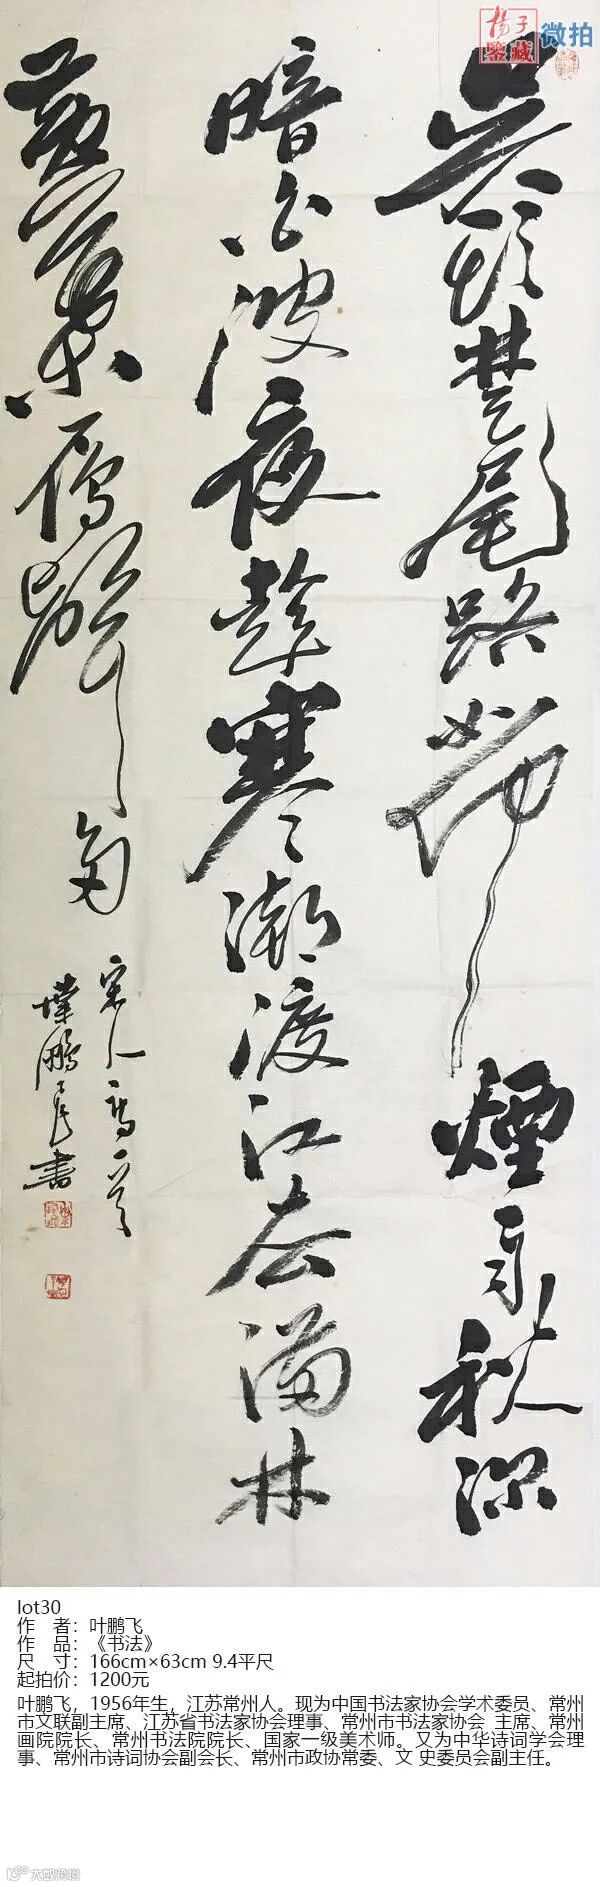 揚子
鉴藏
微拍
吴頭楚尾路如何煙雨秋深
暗白波夜趁寒潮渡江去满林
黄葉雁聲多
宋人 一首
葉鵬飛書
lot30
作　者：叶鹏飞
作　品：《书法》
尺　寸：166cm×63cm 9.4平尺
起拍价：1200元
叶鹏飞，1956年生，江苏常州人。现为中国书法家协会学术委员、常州
市文联副主席、江苏省书法家协会理事、常州市书法家协会 主席、常州
画院院长、常州书法院院长、国家一级美术师。又为中华诗词学会理
事、常州市诗词协会副会长、常州市政协常委、文 史委员会副主任。
大数跨境